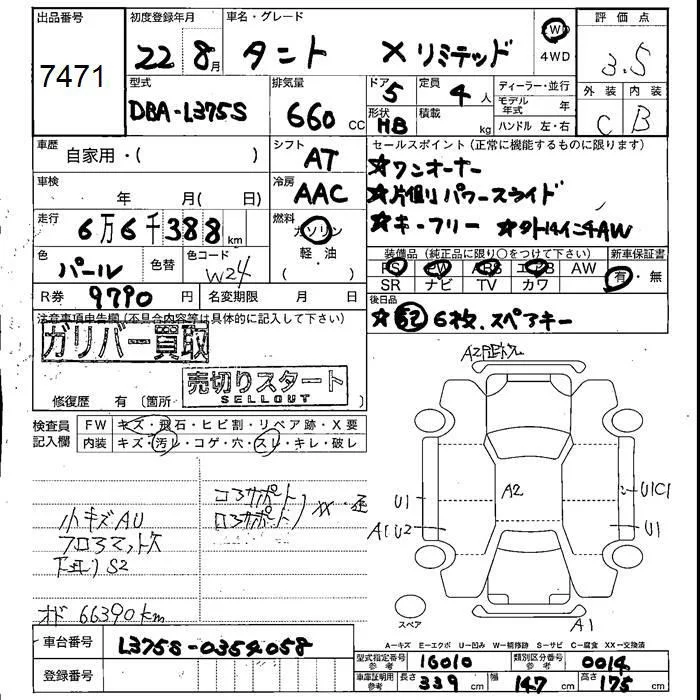 出品番号 7471
初度登録年月 22 8月
車名・グレード タント Xリミテッド
2WD 4WD
評価点 3.5
外装 C 内装 B
型式 DBA-L375S
排気量 660 CC
ドア 5 形状 HB
定員 4人 積載 kg
ディーラー・並行
モデル年式 年
ハンドル 左・右
車歴 自家用・( )
シフト AT
セールスポイント (正常に機能するものに限ります)
☆ワンオーナー
☆片側パワースライド
☆キーフリー
車検 年 月( 日)
冷房 AAC
走行 6万6千388km
燃料 ガソリン 軽・油 ( )
色 パール 色替 色コード W24
装備品 (純正品に限り○をつけて下さい) 新車保証書
PS PW ABS エアB AW 有・無
SR ナビ TV カワ
R券 9790円 名変期限 月 日
後日品
☆記6枚、スペアキー
注意事項申告欄(不具合内容等は具体的に記入して下さい)
ガリバー買取
売切りスタート
SELLOUT
修復歴 有 (箇所 )
検査員記入欄 FW キズ・飛石・ヒビ割・リペア跡・X要
内装 キズ・汚レ・コゲ・穴・スレ・キレ・破レ
A2
A2
U1 U1C1
U1
A1
小キズAU
フロアマットス
S2
コアサポート
ロアサポート XX・
オド 66390km
スペア
A=キズ E=エクボ U=凹み W=補修跡 S=サビ C=腐食 XX=交換済
車台番号 L375S-0354058
登録番号
型式指定番号参考 16010 類別区分番号参考 0014
車庫証明用参考 長さ 339cm 幅 147cm 高さ 175cm